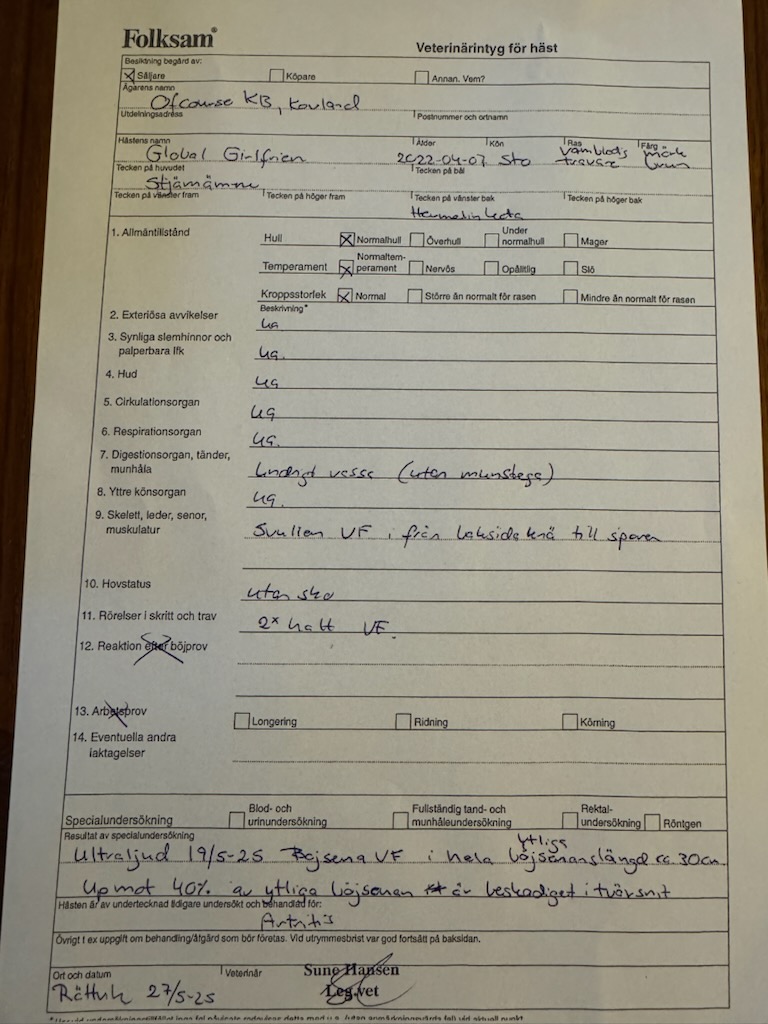 Folksam®
Veterinärintyg för häst
Besiktning begärd av:
Säljare Köpare Annan. Vem?
Ägarens namn
Ofcourse KB, Kovland
Utdelningsadress Postnummer och ortnamn
Hästens namn Ålder Kön Ras Färg
Global Girlfrien 2022-04-07 Sto varmblods travare mörk brun
Tecken på huvudet Tecken på bål
Stjärnämne
Tecken på vänster fram Tecken på höger fram Tecken på vänster bak Tecken på höger bak
Hermelin
1. Allmäntillstånd
Hull Normalhull Överhull Under normalhull Mager
Temperament Normaltem-perament Nervös Opålitlig Slö
Kroppsstorlek Normal Större än normalt för rasen Mindre än normalt för rasen
Beskrivning*
2. Exteriösa avvikelser ua
3. Synliga slemhinnor och palperbara lfk ua.
4. Hud ua
5. Cirkulationsorgan ua
6. Respirationsorgan ua.
7. Digestionsorgan, tänder, munhåla lindrigt vassa (utan munstege)
8. Yttre könsorgan ua.
9. Skelett, leder, senor, muskulatur Svullen VF i från baksida knä till
10. Hovstatus utan sko
11. Rörelser i skritt och trav 2* halt VF.
12. Reaktion efter böjprov
13. Arbetsprov Longering Ridning Körning
14. Eventuella andra iakttagelser
Specialundersökning Blod- och urinundersökning Fullständig tand- och munhåleundersökning Rektal-undersökning Röntgen
Resultat av specialundersökning
Ultraljud 19/5-25 Böjsena VF i hela ytliga böjsenanslängd ca. 30cm.
Upmot 40% av ytliga böjsenan är beskadiget i tvärsnit
Hästen är av undertecknad tidigare undersökt och behandlad för:
Artritis
Övrigt t ex uppgift om behandling/åtgärd som bör företas. Vid utrymmesbrist var god fortsätt på baksidan.
Ort och datum Veterinär
Rättvik 27/5-25
Sune Hansen
Leg.vet